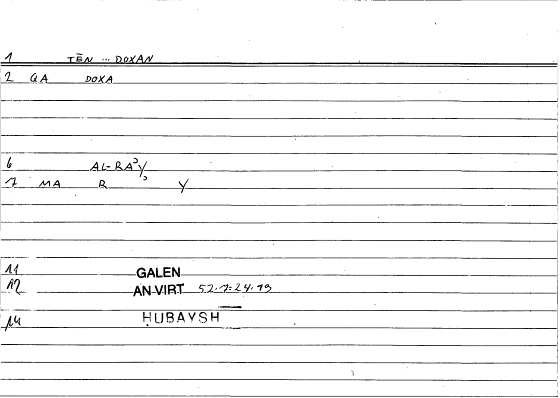 1 TĒN ... DOXAN
2 QA DOXA
6 AL-RAʾY,
7 MA R Y
11 GALEN
12 AN VIRT 52.7=24.19
14 ḤUBAYSH